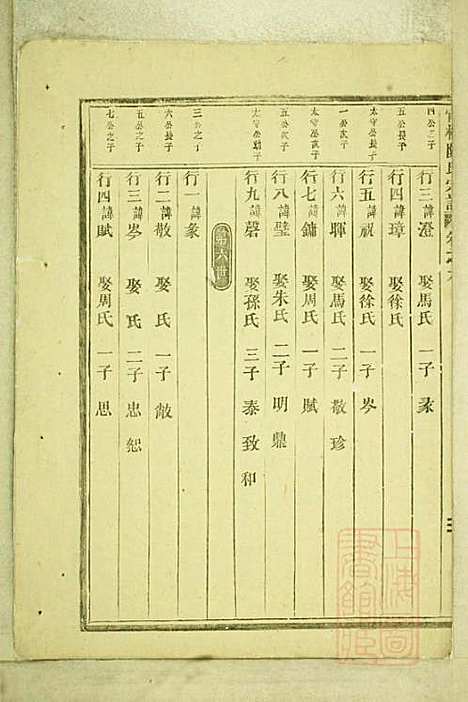 四公三子 行三諱澄 娶馬氏 一子彖
五公長子 行四諱璋 娶徐氏
太守公長子 行五諱 娶徐氏 一子岑
一公次子 行六諱暉 娶馬氏 二子散珍
太守公次子 行七諱鏞 娶周氏 一子賦
五公次子 行八諱璧 娶朱氏 二子明鼎
太守公幼子 行九諱磬 娶孫氏 三子泰致和
第六世
三公之子 行一諱彖
六公之子 行二諱散 娶 氏 一子敞
五公之子 行三諱岑 娶 氏 二子忠恕
七公之子 行四諱賦 娶周氏 一子思
上海圖書館藏